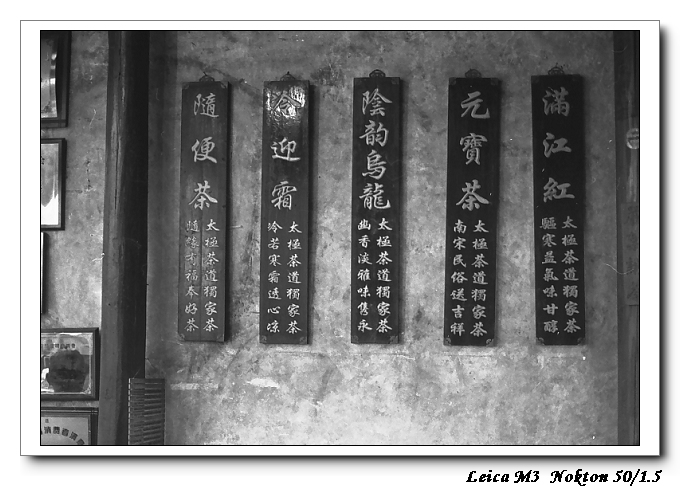 滿江紅
太極茶道獨家茶
驅寒益氣味甘醇
元寶茶
太極茶道獨家茶
南宋民俗送吉祥
陰韵烏龍
太極茶道獨家茶
幽香淡雅味雋永
冷迎霜
太極茶道獨家茶
冷若寒霜透心凉
隨便茶
太極茶道獨家茶
隨緣有福奉好茶
Leica M3 Nokton 50/1.5